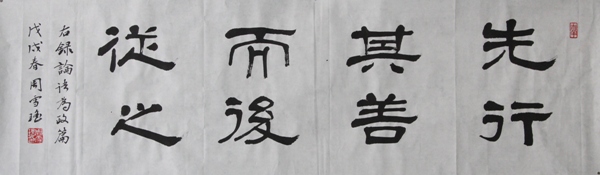 先行
其善
而後
從之
右錄論語為政篇
戊戌春周雪